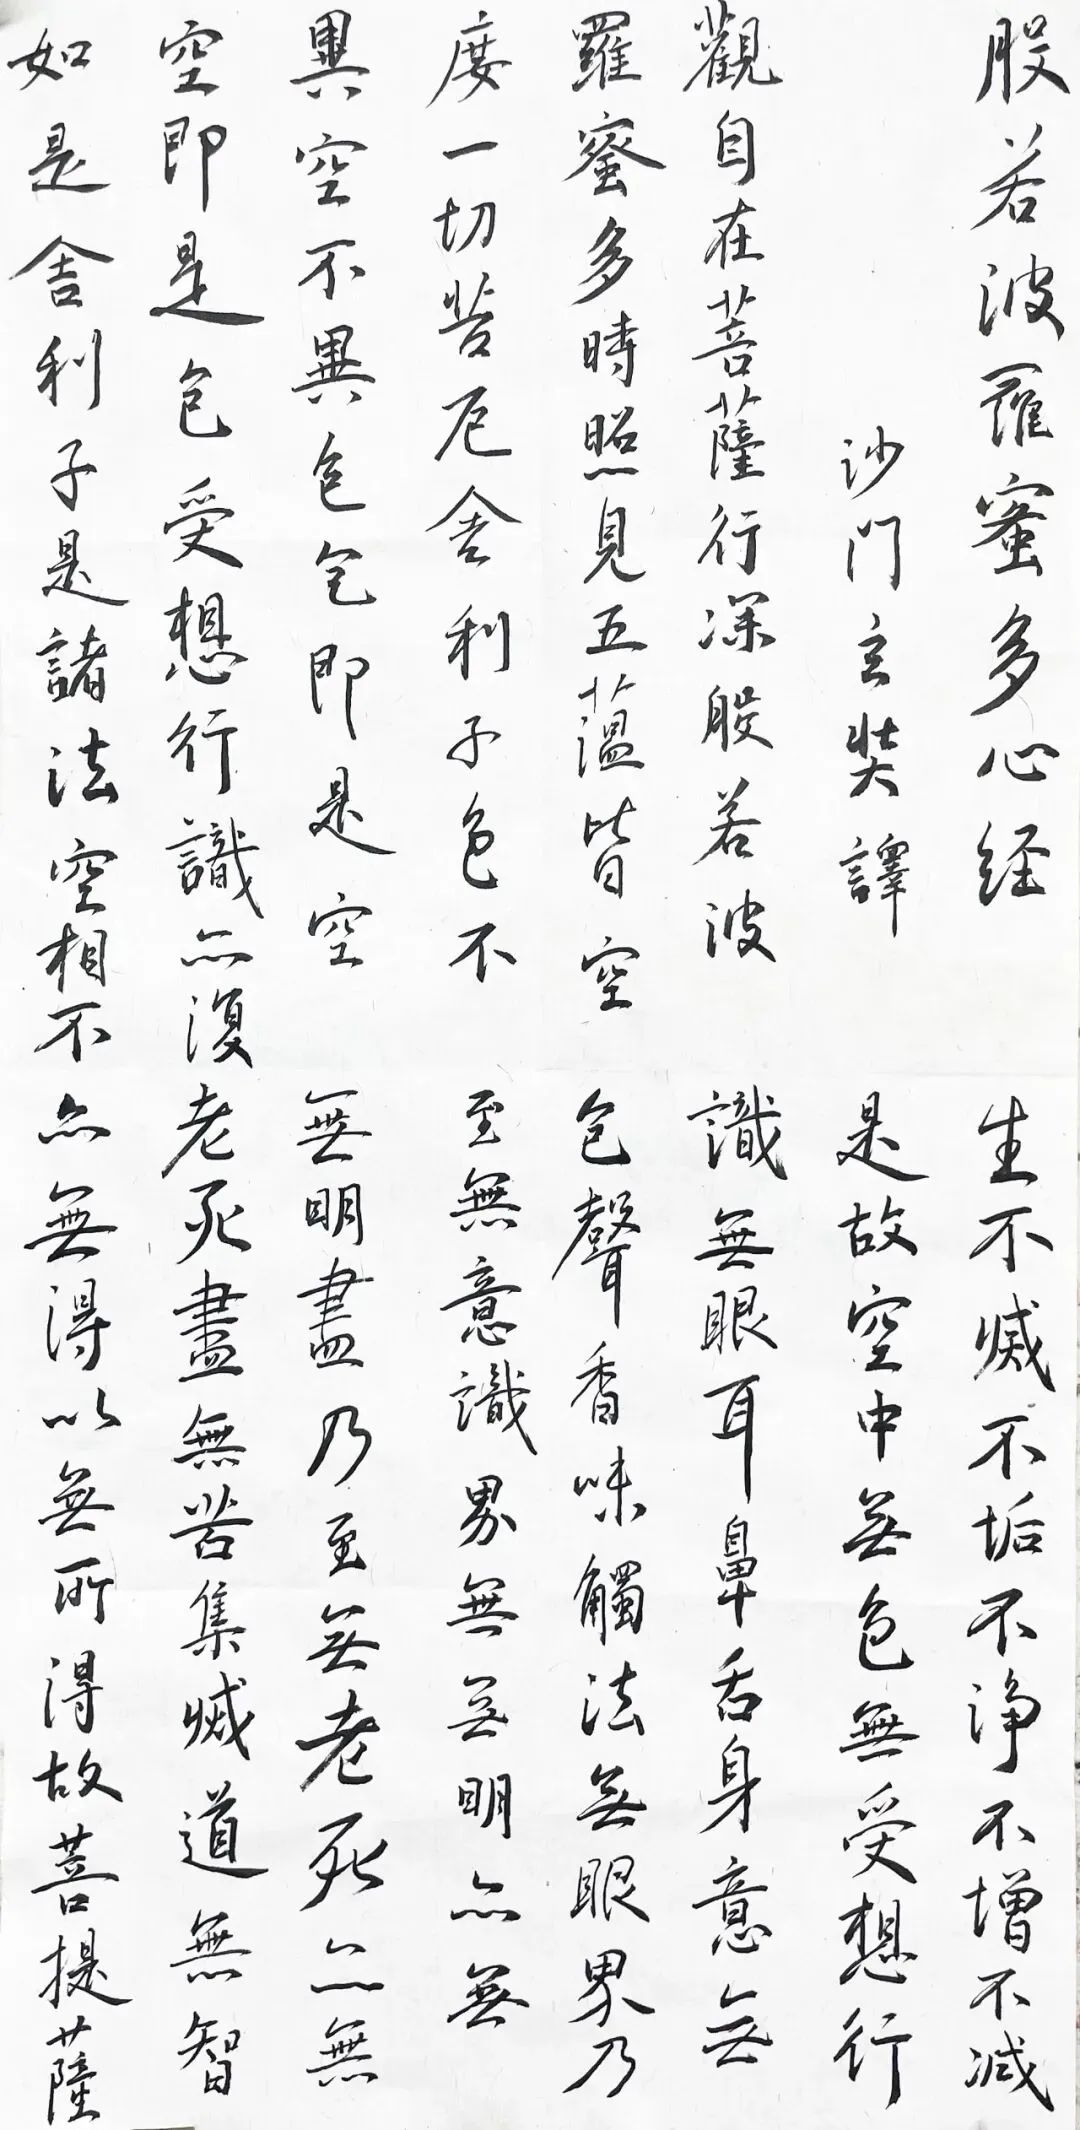 般若波羅蜜多心経
沙門玄奘譯
觀自在菩薩行深般若波
羅蜜多時照見五蘊皆空
度一切苦厄舍利子色不
異空不異色色即是空
空即是色受想行識亦復
如是舍利子是諸法空相不
生不滅不垢不淨不增不減
是故空中無色無受想行
識無眼耳鼻舌身意無
色聲香味觸法無眼界乃
至無意識界無無明亦無
無明盡乃至無老死亦無
老死盡無苦集滅道無智
亦無得以無所得故菩提薩